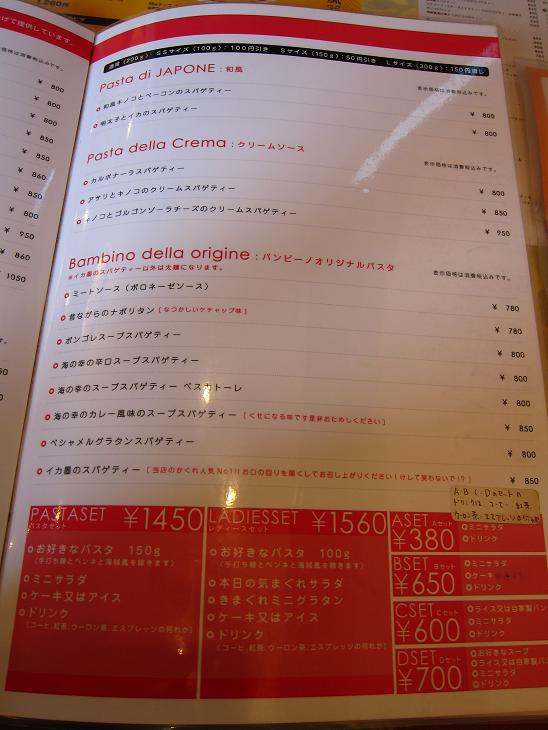 1,260円
げて提供しています。
価格は消費税込みです。
¥ 800
¥ 800
¥ 800
¥ 850
¥ 860
¥ 850
¥ 800
¥ 950
¥ 860
¥ 1050
通常(200g): SSサイズ(100g):100円引き Sサイズ(150g):50円引き Lサイズ(300g):150円増し
Pasta di JAPONE:和風
表示価格は消費税込みです。
和風キノコとベーコンのスパゲティー ¥ 800
明太子とイカのスパゲティー ¥ 800
Pasta della Crema:クリームソース
表示価格は消費税込みです。
カルボナーラスパゲティー ¥ 800
アサリとキノコのクリームスパゲティー ¥ 850
キノコとゴルゴンゾーラチーズのクリームスパゲティー ¥ 950
Bambino della origine:バンビーノオリジナルパスタ
※イカ墨のスパゲティー以外は太麺になります。
表示価格は消費税込みです。
ミートソース(ボロネーゼソース) ¥ 780
昔ながらのナポリタン [なつかしいケチャップ味] ¥ 780
ボンゴレスープスパゲティー ¥ 800
海の幸の辛口スープスパゲティー ¥ 800
海の幸のスープスパゲティー ペスカトーレ ¥ 800
海の幸のカレー風味のスープスパゲティー [くせになる味です是非おためしください] ¥ 850
ベシャメルグラタンスパゲティー ¥ 800
イカ墨のスパゲティー [当店のかくれ人気No1!!お口の回りを黒くしてお召し上がりください!けして笑わないで!?] ¥ 850
PASTASET ¥1450
パスタセット
お好きなパスタ 150g
(手打ち麺とペンネと海賊風を除きます)
ミニサラダ
ケーキ又はアイス
ドリンク
(コーヒ、紅茶、ウーロン茶、エスプレッソの何れか)
LADIESSET ¥1560
レディースセット
お好きなパスタ 100g
(手打ち麺とペンネと海賊風を除きます)
本日の気まぐれサラダ
きまぐれミニグラタン
ケーキ又はアイス
ドリンク
(コーヒ、紅茶、ウーロン茶、エスプレッソの何れか)
A B C・Dのセットの
ドリンクは コーヒー 紅茶
ウーロン茶
ASET Aセット
¥380
ミニサラダ
ドリンク
BSET Bセット
¥650
ミニサラダ
ケーキ
ドリンク
CSET Cセット
¥600
ライス又は自家製パン
ミニサラダ
ドリンク
DSET Dセット
¥700
お好きなスープ
ライス又は自家製パン
ミニサラダ
ドリンク